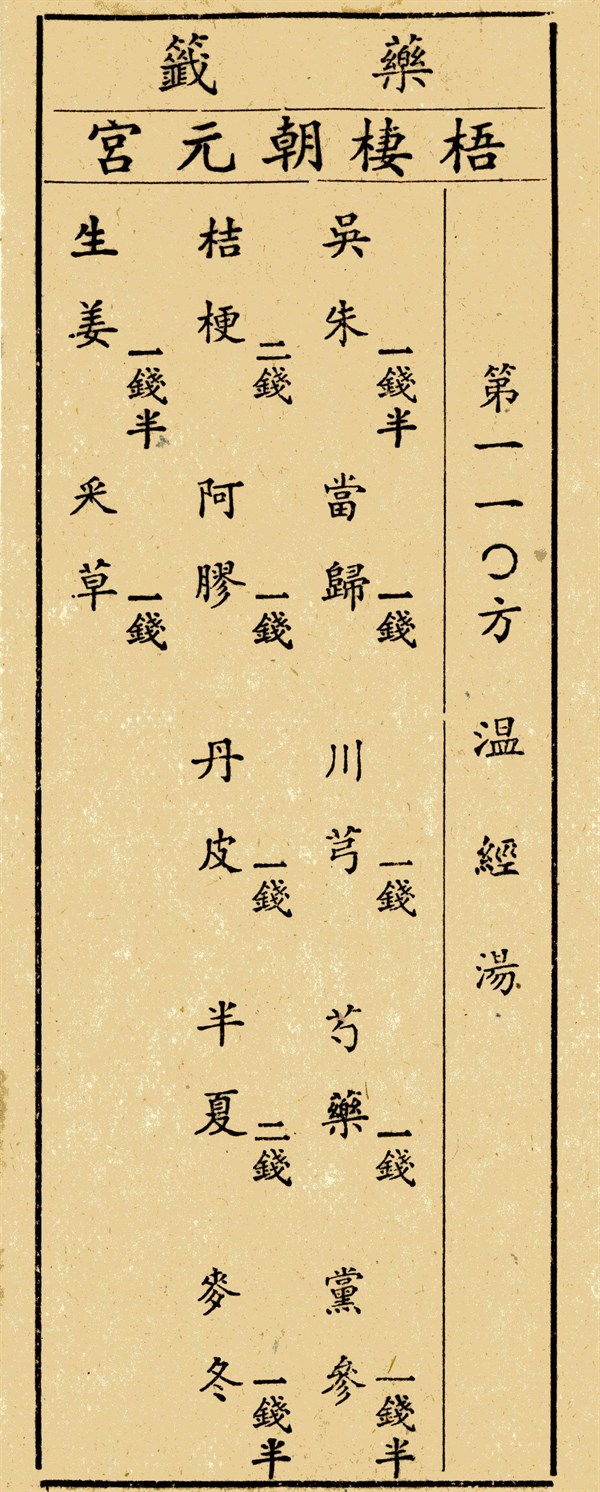 藥籤
梧棲朝元宮
第一一〇方 温經湯
吳朱一錢半 當歸一錢 川芎一錢 芍藥一錢 黨參一錢半
桔梗二錢 阿膠一錢 丹皮一錢 半夏二錢 麥冬一錢半
生姜一錢半 釆草一錢